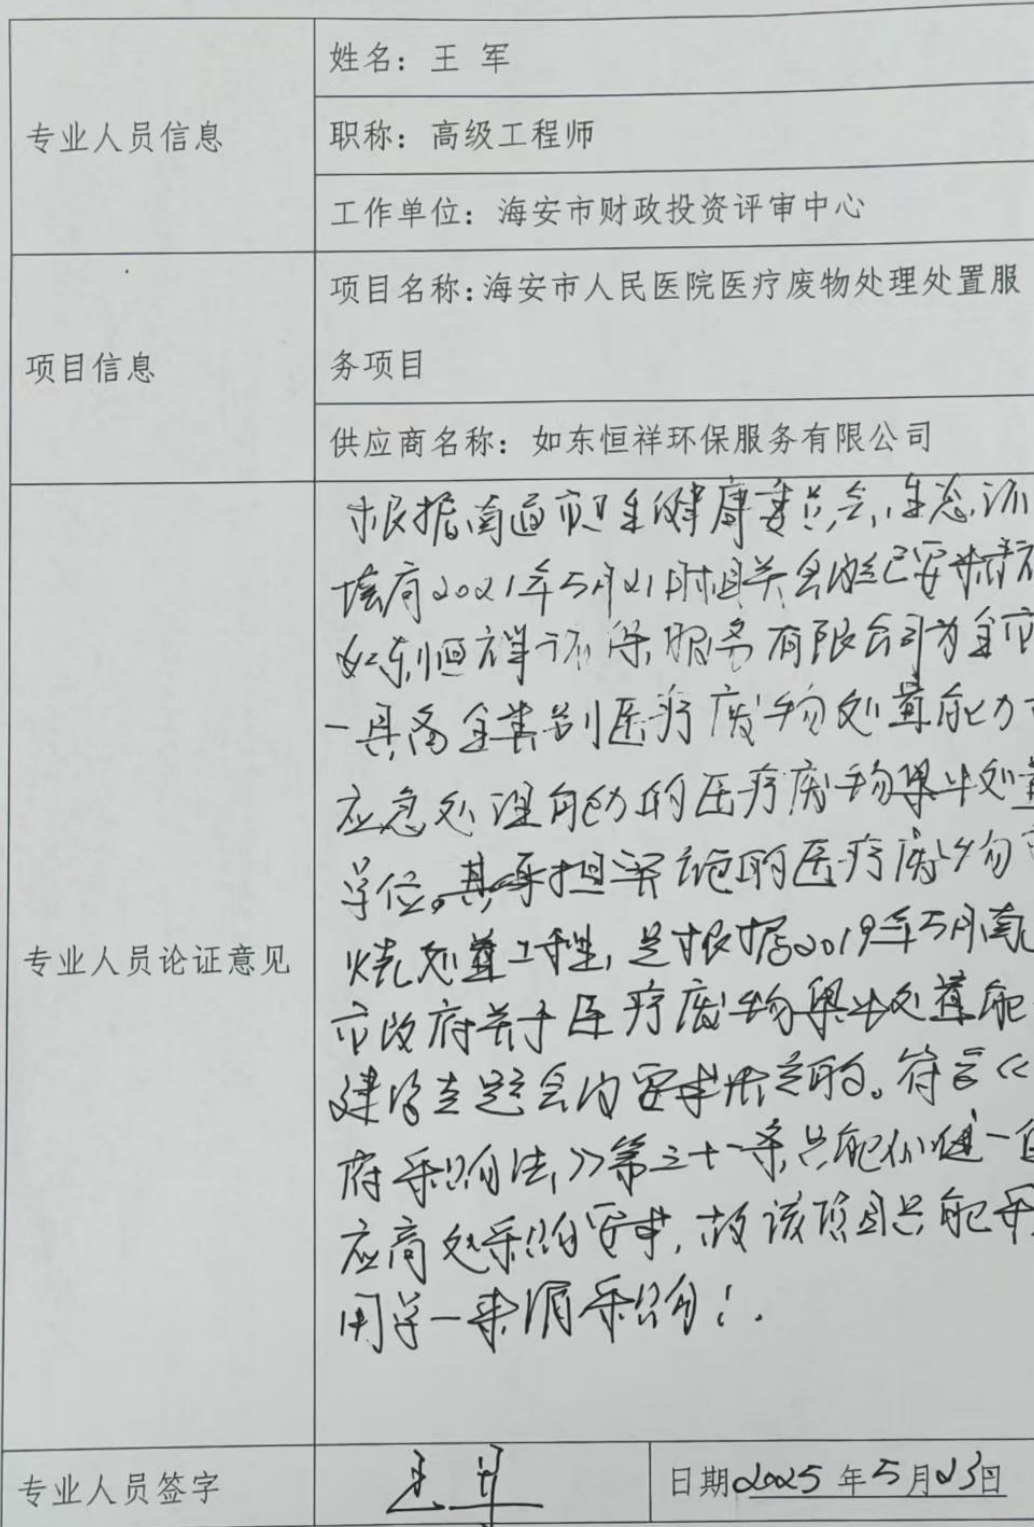 专业人员信息
姓名：王 军
职称：高级工程师
工作单位：海安市财政投资评审中心
项目信息
项目名称：海安市人民医院医疗废物处理处置服
务项目
供应商名称：如东恒祥环保服务有限公司
专业人员论证意见
根据南通市卫生健康委员会,生态环
境局2021年5月21日相关会议纪要精神
如东恒祥环保服务有限公司为全市
一具备全类别医疗废物处置能力
应急处理能力的医疗废物集中处置
单位。其承担实施的医疗废物
烧处置工程，是根据2019年5月南
市政府关于医疗废物集中处置能
建设专题会的要求决定的。符合《
府采购法》第三十一条只能从唯一
应商处采购要求,故该项目只能采
用单一来源采购！.
专业人员签字
王军
日期2025年5月23日